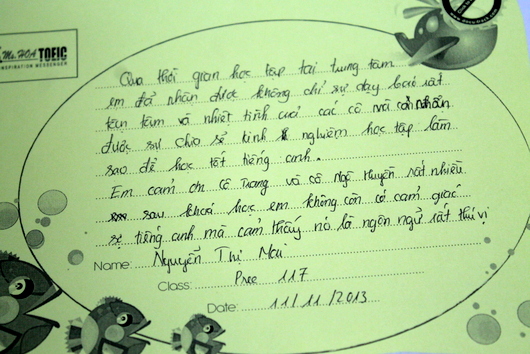 Ms. HOA TOEIC
INSPIRATION MESSENGER
Qua thời gian học tập tại trung tâm
em đã nhận được không chỉ sự dạy bảo rất
tận tâm và nhiệt tình của các cô mà còn nhận
được sự chia sẻ kinh nghiệm học tập làm
sao để học tốt tiếng anh.
Em cảm ơn cô Trang và cô Ngô Huyền rất nhiều
sau khoá học em không còn có cảm giác
sợ tiếng anh mà cảm thấy nó là ngôn ngữ rất thú vị
Name: Nguyễn Thị Mai
Class: Pree 117
Date: 11/11/2013